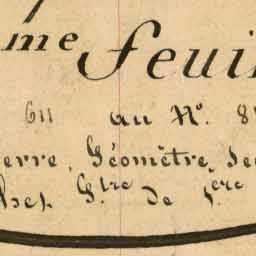 me feuil
611 au N°. 8
erre, Géomètre, Se
G.tre de 1.ère